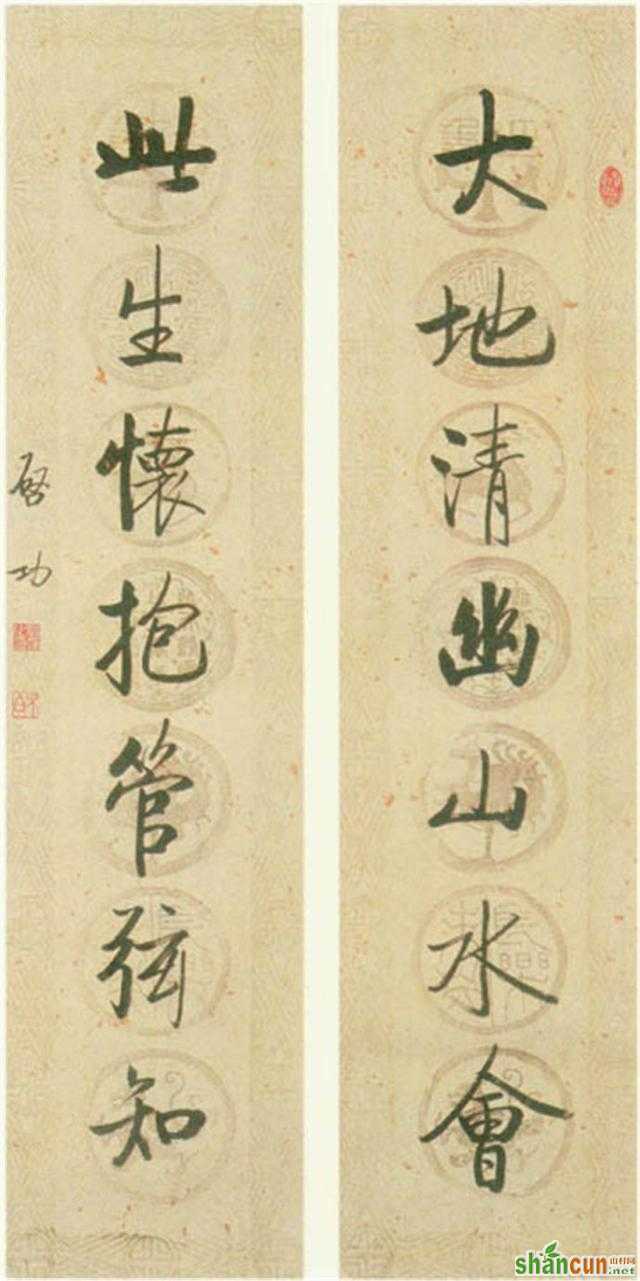 大地清幽山水會
此生懷抱管弦知
啓功
shancun
山村网
.net